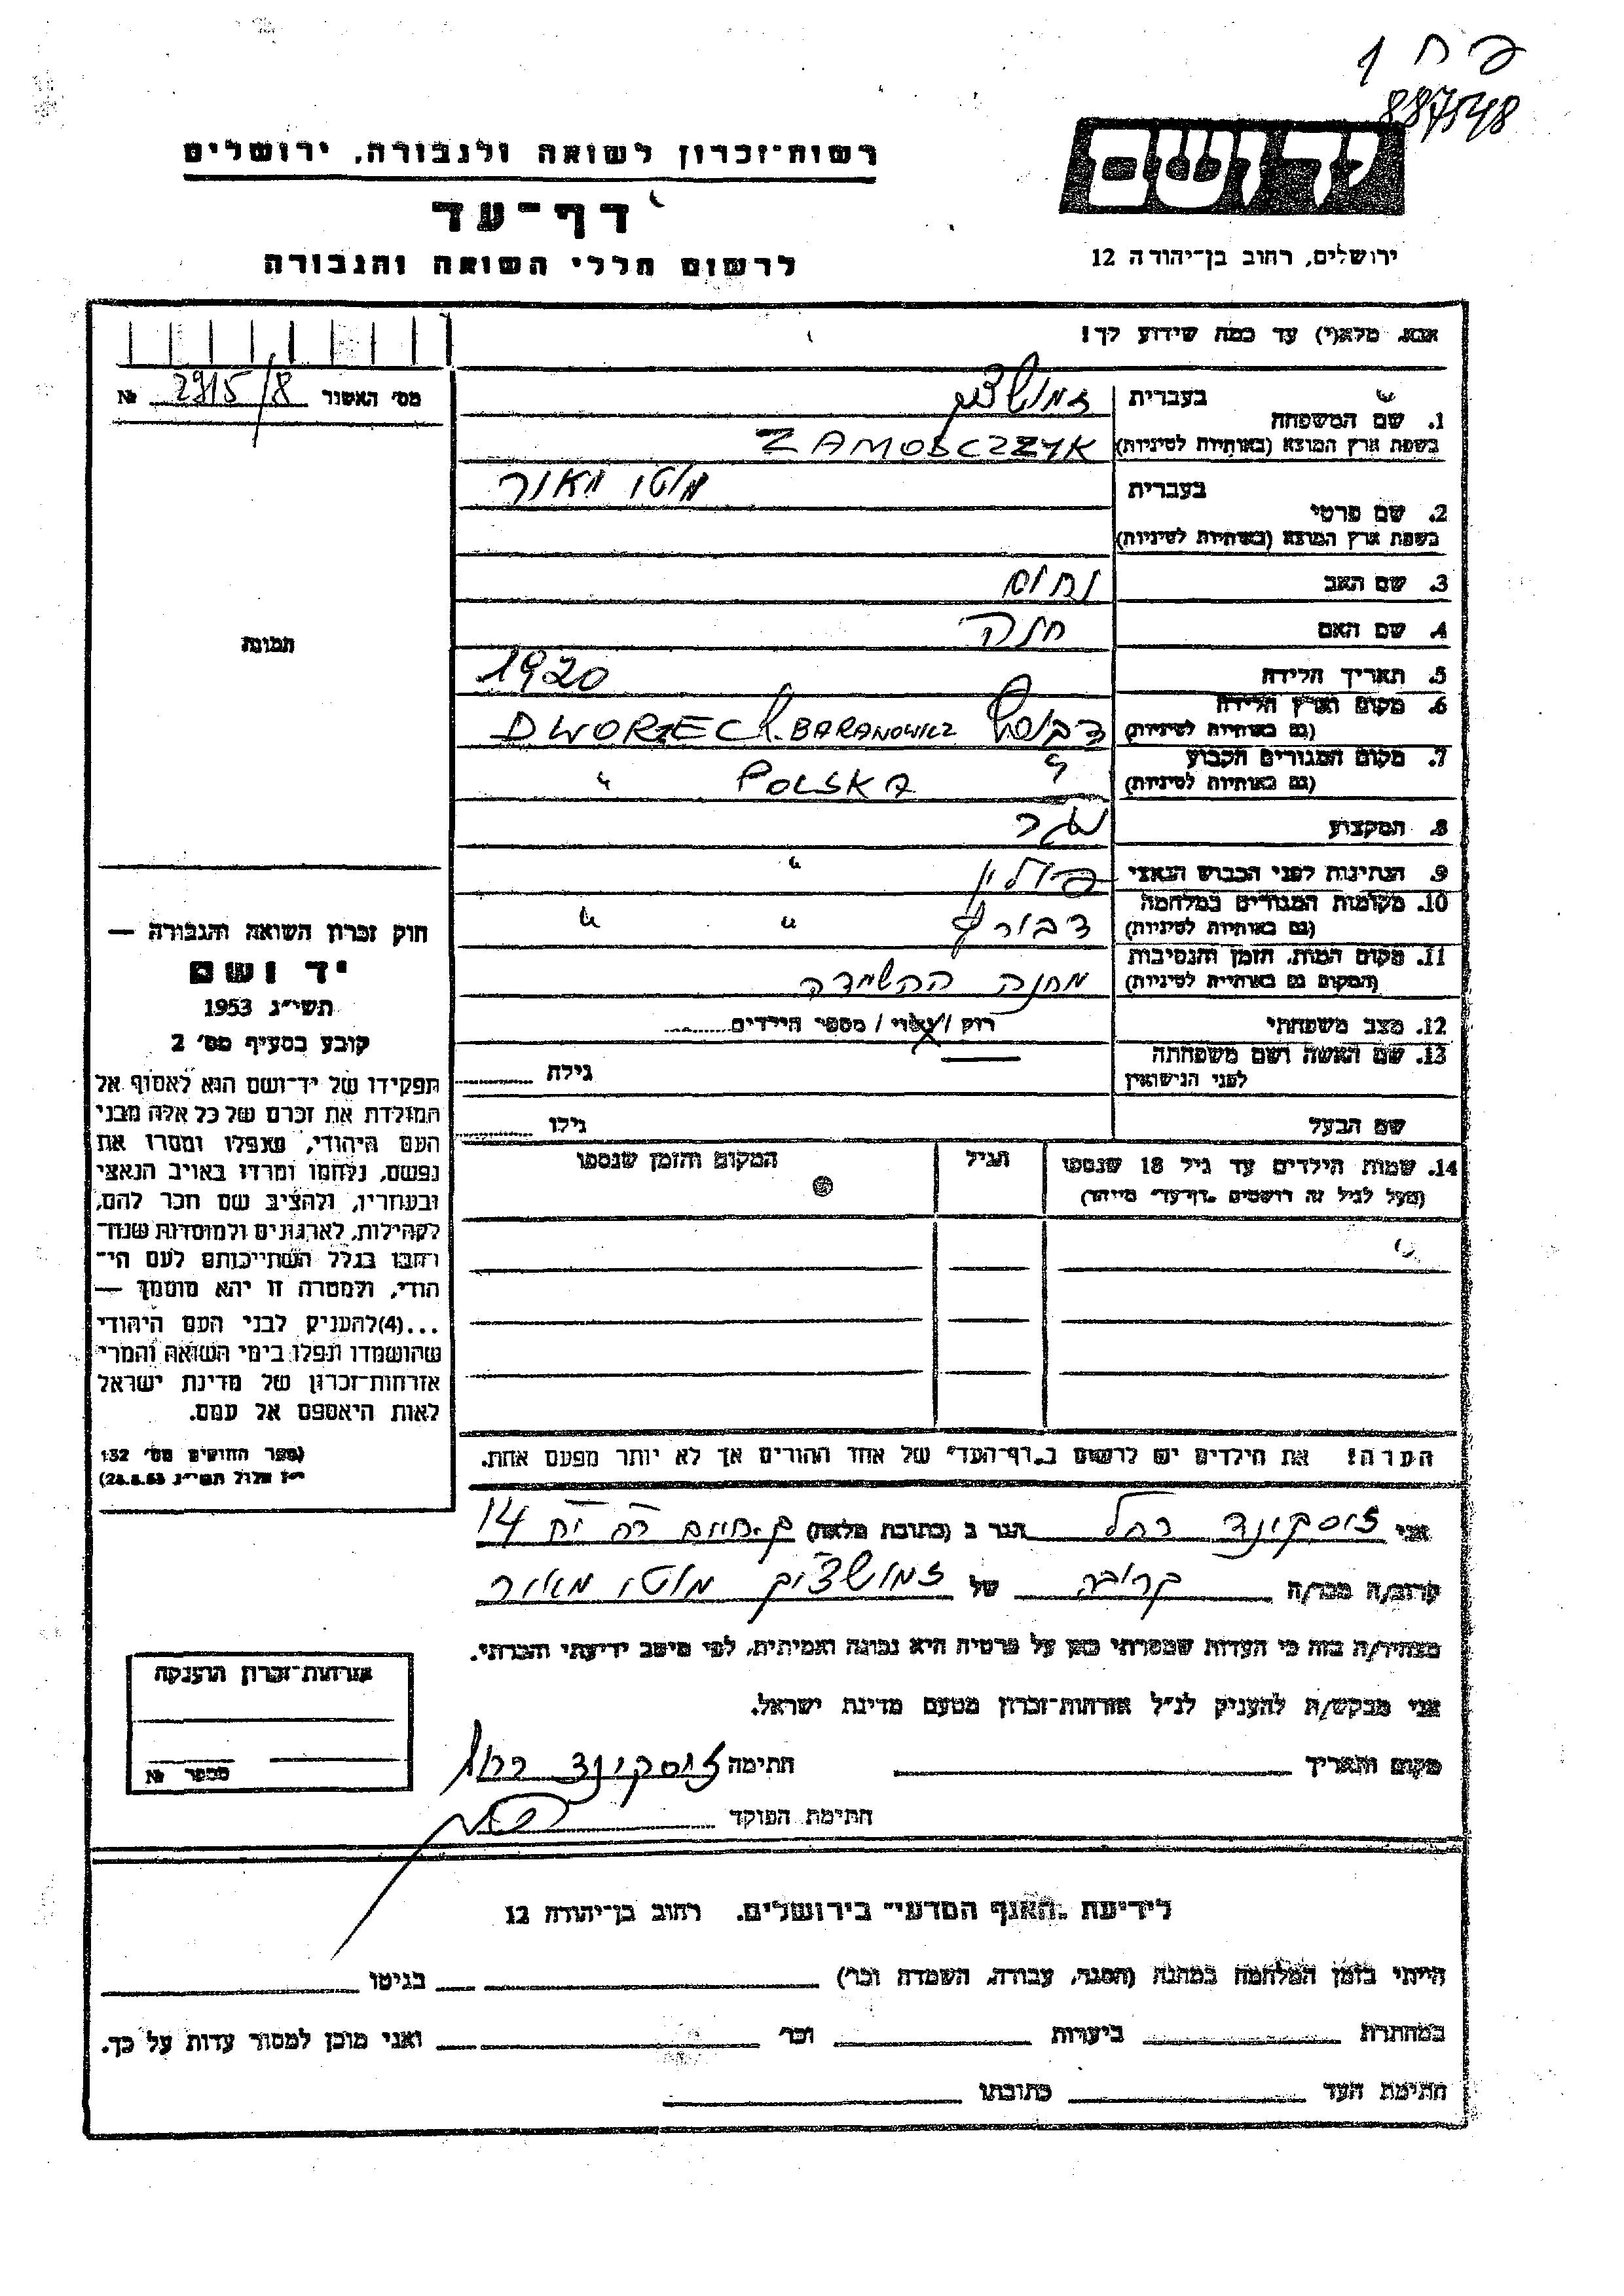 פ ח 1
887548
ידושם
ירושלים, רחוב בן־יהודה 12
רשות־זכרון לשואה ולגבורה, ירושלים
דף־עד
לרשום חללי השואה והגבורה
אנא, מלא(י) עד כמה שידוע לך!
מס׳ האשור 2915/8 №
תמונה
1. שם המשפחה
בעברית זמושציק
בשפת ארץ המוצא (באותיות לטיניות) ZAMOSCZZYK
2. שם פרטי
בעברית מוטי מאיר
בשפת ארץ המוצא (באותיות לטיניות)
3. שם האב נחום
4. שם האם חנה
5. תאריך הלידה 1920
6. מקום וארץ הלידה
(גם באותיות לטיניות) DWORZEC k. BARANOWICZ
7. מקום המגורים הקבוע
(גם באותיות לטיניות) " POLSKA "
8. המקצוע נגר
9. הנתינות לפני הכבוש הנאצי פולין "
10. מקומות המגורים במלחמה
(גם באותיות לטיניות) דבורץ " "
11. מקום המות, הזמן והנסיבות
(המקום גם באותיות לטיניות) מחנה ההשמדה
12. מצב משפחתי רוק / נשוי / מספר הילדים
13. שם האשה ושם משפחתה
לפני הנישואין גילה
שם הבעל גילו
14. שמות הילדים עד גיל 18 שנספו
(מעל לגיל זה רושמים „דף־עד" מיוחד)
הגיל
המקום והזמן שנספו
הערה! את הילדים יש לרשום ב„דף־העד" של אחד ההורים אך לא יותר מפעם אחת.
חוק זכרון השואה והגבורה —
יד ושם
תשי״ג 1953
קובע בסעיף מס׳ 2
תפקידו של יד־ושם הוא לאסוף אל
המולדת את זכרם של כל אלה מבני
העם היהודי, שנפלו ומסרו את
נפשם, נלחמו ומרדו באויב הנאצי
ובעוזריו, ולהציב שם וזכר להם,
לקהילות, לארגונים ולמוסדות שנח־
רבו בגלל השתייכותם לעם הי־
הודי, ולמטרה זו יהא מוסמך —
...(4)להעניק לבני העם היהודי
שהושמדו ונפלו בימי השואה והמרי
אזרחות־זכרון של מדינת ישראל
לאות היאספם אל עמם.
(ספר החוקים מס׳ 132
י״ז אלול תשי״ג 28.8.53)
אני זוסקינד רחל הגר ב (כתובת מלאה) 14
קרוב/ה מכר/ה קרובה של זמושציק מוטי מאיר
מצהיר/ה בזה כי העדות שמסרתי כאן על פרטיה היא נכונה ואמיתית, לפי מיטב ידיעתי והכרתי.
אני מבקש/ת להעניק לנ״ל אזרחות־זכרון מטעם מדינת ישראל.
מקום ותאריך חתימה זוסקינד רחל
חתימת הפוקד
אזרחות־זכרון הוענקה
מספר №
לידיעת „האגף המדעי" בירושלים, רחוב בן־יהודה 12
הייתי בזמן המלחמה במחנה (הסגר, עבודה, השמדה וכר׳) בגיטו
במחתרת ביערות וכר׳ ואני מוכן למסור עדות על כך.
חתימת העד כתובתו